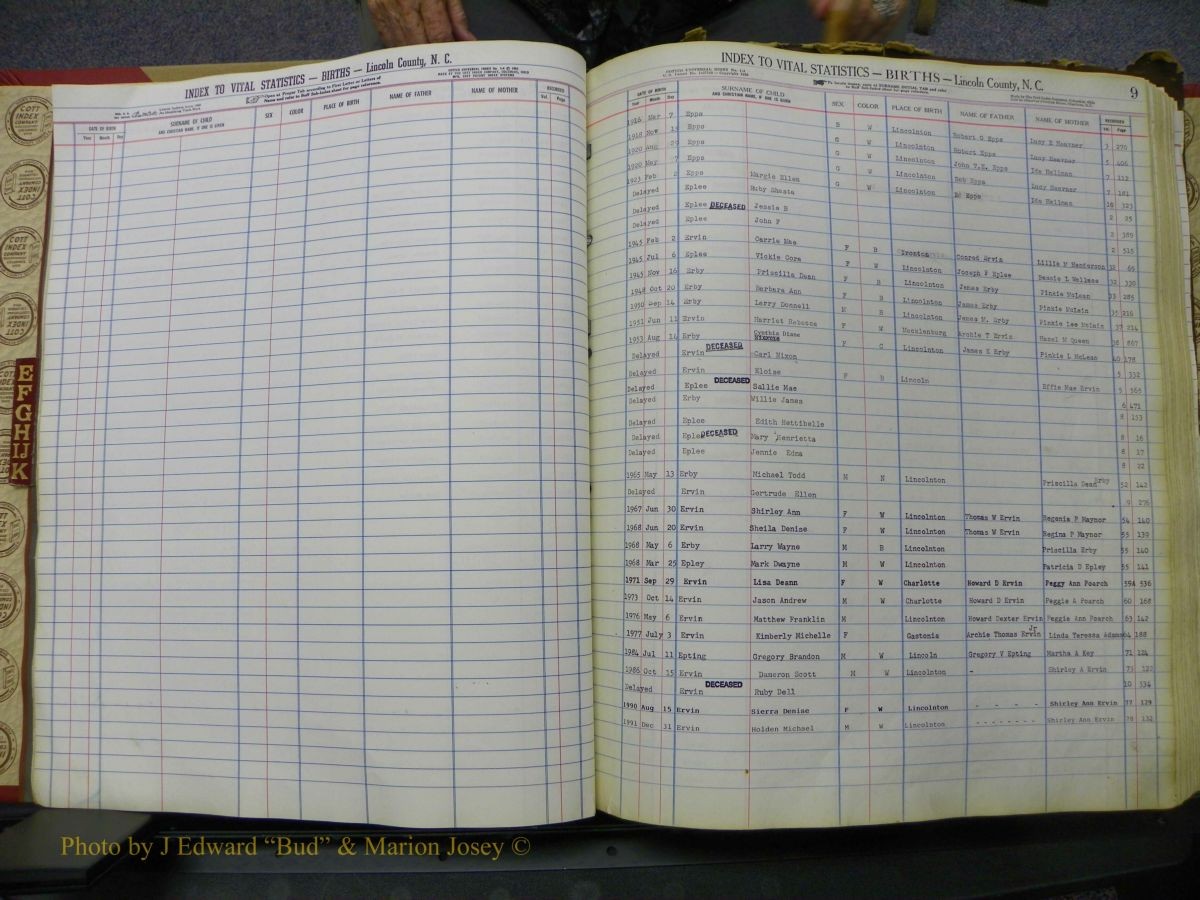 INDEX TO VITAL STATISTICS — BIRTHS — Lincoln County, N. C.
DATE OF BIRTH
Year Month Day
SURNAME OF CHILD
AND CHRISTIAN NAME, IF ONE IS GIVEN
SEX COLOR PLACE OF BIRTH NAME OF FATHER NAME OF MOTHER RECORDED
Vol. Page
COTT
INDEX
COMPANY
E F G H I J K
INDEX TO VITAL STATISTICS — BIRTHS — Lincoln County, N. C. 9
DATE OF BIRTH
Year Month Day
SURNAME OF CHILD
AND CHRISTIAN NAME, IF ONE IS GIVEN
SEX COLOR PLACE OF BIRTH NAME OF FATHER NAME OF MOTHER RECORDED
Vol. Page
1916 Mar 7 Epps B W Lincolnton Robert G Epps Lucy E Heavner 3 270
1918 Nov Epps G W Lincolnton Robert Epps Lucy Heavner 5 406
1920 Aug 29 Epps G W Lincolnton John T.E. Epps Ida Hallman 7 112
1920 May 7 Epps G W Lincolnton Rob Epps Lucy Heavner 7 181
1923 Feb 2 Epps Margie Ellen Epps Ida Hallman 10 323
Delayed Eplee Ruby Shasta 2 25
Delayed Eplee DECEASED Jessie B 2 389
Delayed Eplee John F 2 515
1945 Feb 2 Ervin Carrie Mae F B Conrad Ervin Lillie M Henderson 32 65
1945 Jul 6 Eplee Vickie Cora F W Lincolnton Joseph F Eplee Bessie L Wallace 32 330
1945 Nov 16 Erby Priscilla Dean F B Lincolnton James Erby Pinkie McLean 33 285
1948 Oct 20 Erby Barbara Ann F B Lincolnton James Erby Pinkie McLain 35 216
1950 Sep 14 Erby Larry Donnell M B Lincolnton James M. Erby Pinkie Lee McLain 37 214
1951 Jun 11 Ervin Harriet Rebecca F W Mecklenburg Archie T Ervin Hazel M Queen 38 867
1953 Aug 14 Erby Cynthia Diane F C Lincolnton James E Erby Pinkie L McLean 40 178
Delayed Ervin DECEASED Carl Nixon 5 332
Delayed Ervin Eloise F B Lincoln Effie Mae Ervin 5 365
Delayed Eplee DECEASED Sallie Mae 6 471
Delayed Erby Willie James 8 153
Delayed Eplee Edith Hettibelle 8 16
Delayed Eplee DECEASED Mary Henrietta 8 17
Delayed Eplee Jennie Edna 8 22
1965 May 13 Erby Michael Todd M N Lincolnton Priscilla Dean Erby 52 142
Delayed Ervin Gertrude Ellen 9 276
1967 Jun 30 Ervin Shirley Ann F W Lincolnton Thomas W Ervin Regenia P Maynor 54 140
1968 Jun 20 Ervin Sheila Denise F W Lincolnton Thomas W Ervin Regina P Maynor 55 139
1968 May 6 Erby Larry Wayne M B Lincolnton Priscilla Erby 55 140
1968 Mar 25 Epley Mark Dwayne M W Lincolnton Patricia D Epley 55 141
1971 Sep 29 Ervin Lisa Deann F W Charlotte Howard D Ervin Peggy Ann Poarch 59A 536
1973 Oct 14 Ervin Jason Andrew M W Charlotte Howard D Ervin Peggie A Poarch 60 168
1976 May 6 Ervin Matthew Franklin M Lincolnton Howard Dexter Ervin Peggie Ann Poarch 63 142
1977 July 3 Ervin Kimberly Michelle F Gastonia Archie Thomas Ervin Jr Linda Teressa Adams 64 188
1984 Jul 11 Epting Gregory Brandon M W Lincoln Gregory V Epting Martha A Key 71 124
1986 Oct 15 Ervin Dameron Scott M W Lincolnton - Shirley A Ervin 73 122
Delayed Ervin DECEASED Ruby Dell 10 534
1990 Aug 15 Ervin Sierra Denise F W Lincolnton - - - - Shirley Ann Ervin 77 129
1991 Dec 31 Ervin Holden Michael M W Lincolnton - - - - - - - - Shirley Ann Ervin 78 132
Photo by J Edward “Bud” & Marion Josey ©